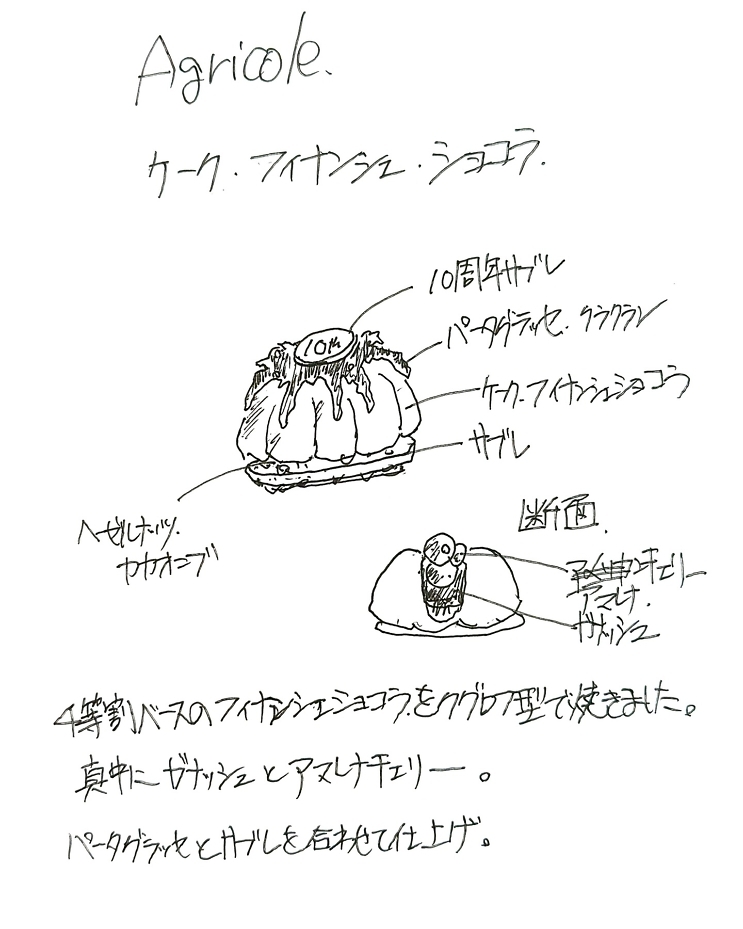 Agricole.
ケーク・フィナンシェ・ショコラ.
10周年サブレ
10th
パータグラッセ.クラクラン
ケーク.フィナンシェショコラ
サブレ
ヘーゼルナッツ.
カカオニブ
断面.
チェリー
アマレナ.
ガナッシュ
4等割ベースのフィナンシェショコラをクグロフ型で焼きました。
真中にガナッシュとアマレナチェリー。
パータグラッセとサブレを合わせて仕上げ。